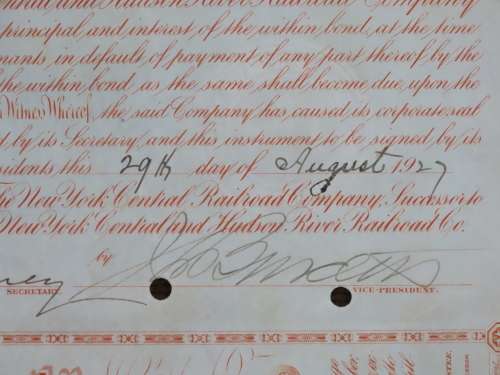 and Hudson River Railroad Company
principal and interest of the within bond, at the time
nants, in default of payment of any part thereof by the
the within bond as the same shall become due, upon the
Witness Whereof, the said Company has caused its corporate seal
d by its Secretary, and this instrument to be signed by its
sidents this 29th day of August 1927
The New York Central Railroad Company, Successor to
New York Central and Hudson River Railroad Co.
by
SECRETARY. VICE-PRESIDENT.